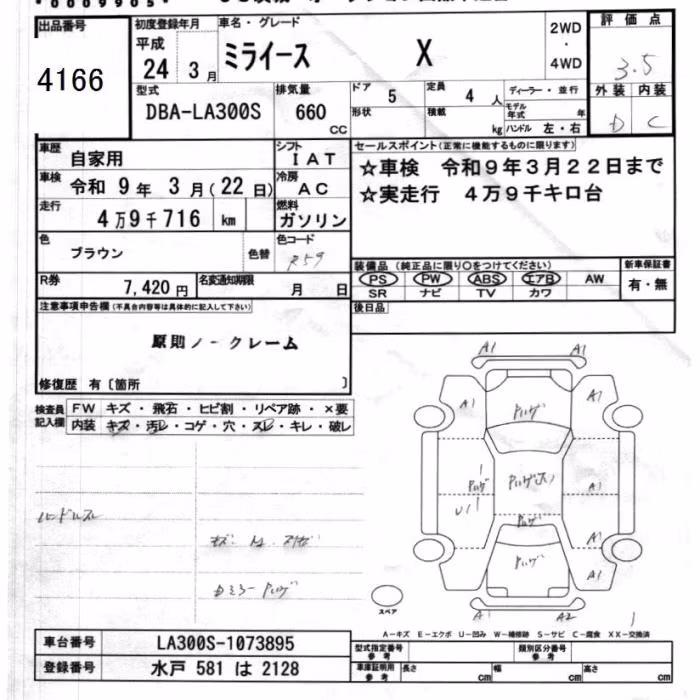 *0009905*
出品番号
4166
初度登録年月
平成
24年 3月
車名・グレード
ミライース X
2WD
・
4WD
評価点
3.5
外装 内装
D C
型式
DBA-LA300S
排気量
660
CC
ドア
5
定員
4人
形状
積載
kg
ディーラー・並行
モデル年式 年
ハンドル 左・右
車歴
自家用
シフト
IAT
車検
令和 9年 3月(22日)
冷房
AC
走行
4万9千716 km
燃料
ガソリン
セールスポイント(正常に機能するものに限ります)
☆車検 令和9年3月22日まで
☆実走行 4万9千キロ台
色
ブラウン
色替
色コード
R59
R券
7,420円
名変通知期限
月 日
装備品(純正品に限り○をつけてください)
PS PW ABS エアB AW
SR ナビ TV カワ
新車保証書
有・無
後日品
注意事項申告欄(不具合内容等は具体的に記入して下さい)
原則ノークレーム
修復歴 有〔箇所 〕
検査員
記入欄
FW キズ・飛石・ヒビ割・リペア跡・×要
内装 キズ・汚レ・コゲ・穴・スレ・キレ・破レ
A1 A1
A1 A1
A1
A1
A1
U1
A1 A2
スペア
A-キズ E-エクボ U-凹み W-補修跡 S-サビ C-腐食 XX-交換済
車台番号
LA300S-1073895
登録番号
水戸 581 は 2128
型式指定番号
参考
類別区分番号
参考
車庫証明用
参考
長さ cm
幅 cm
高さ cm